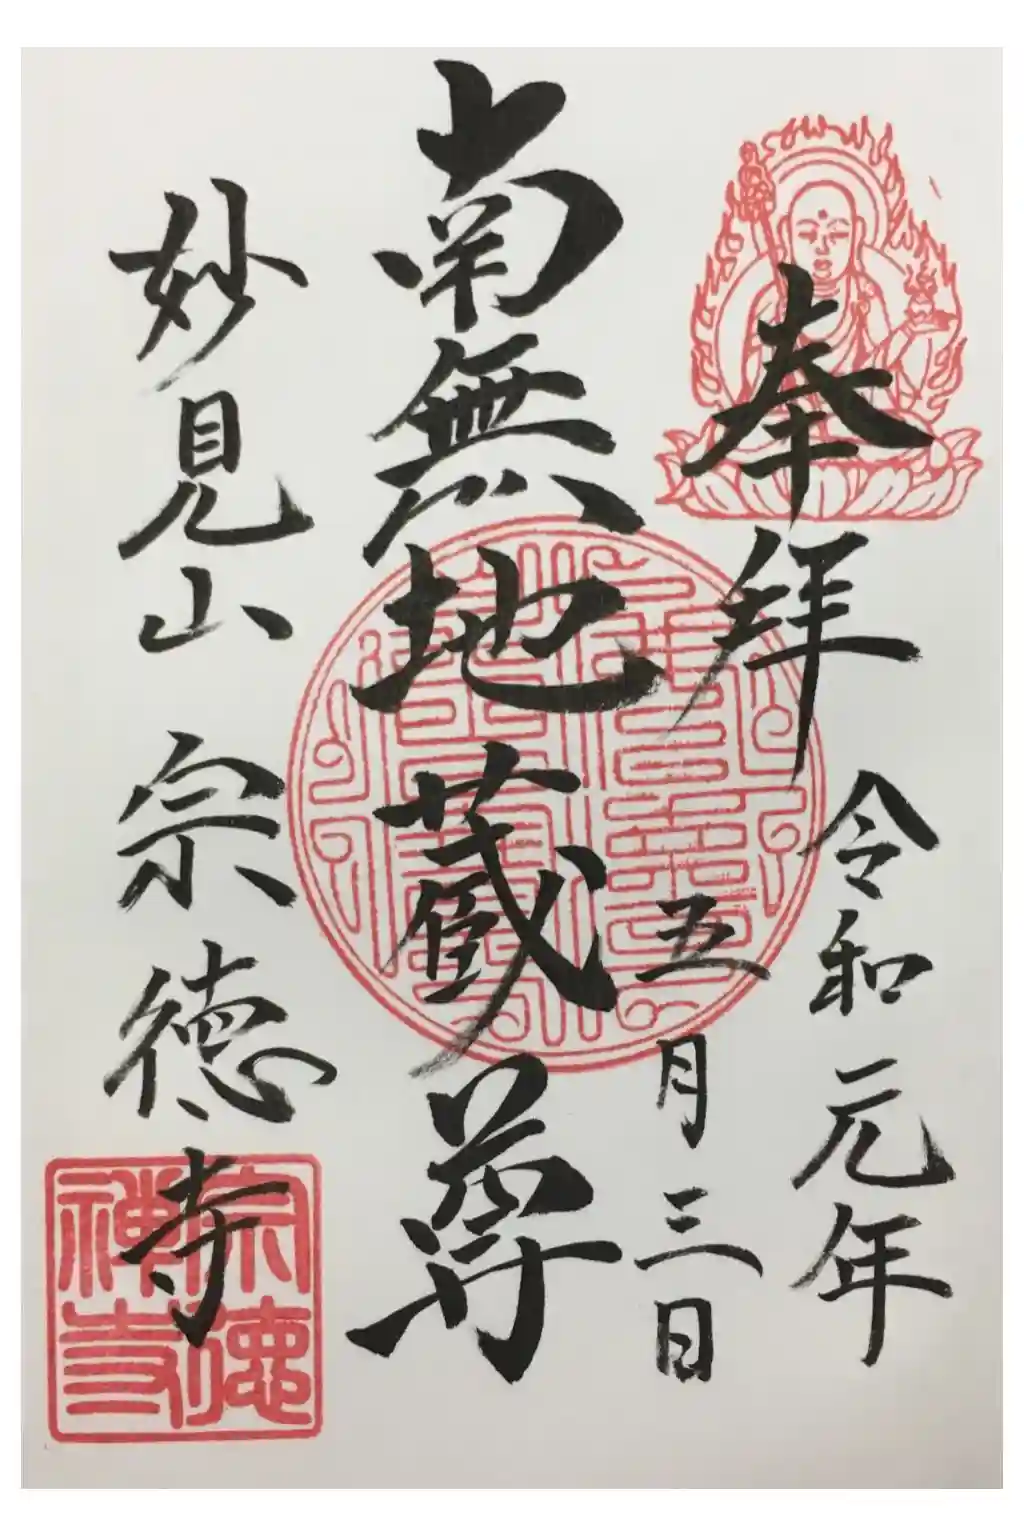 奉拝
令和元年
五月三日
南無地蔵尊
妙見山 宗徳寺
宗徳禅寺